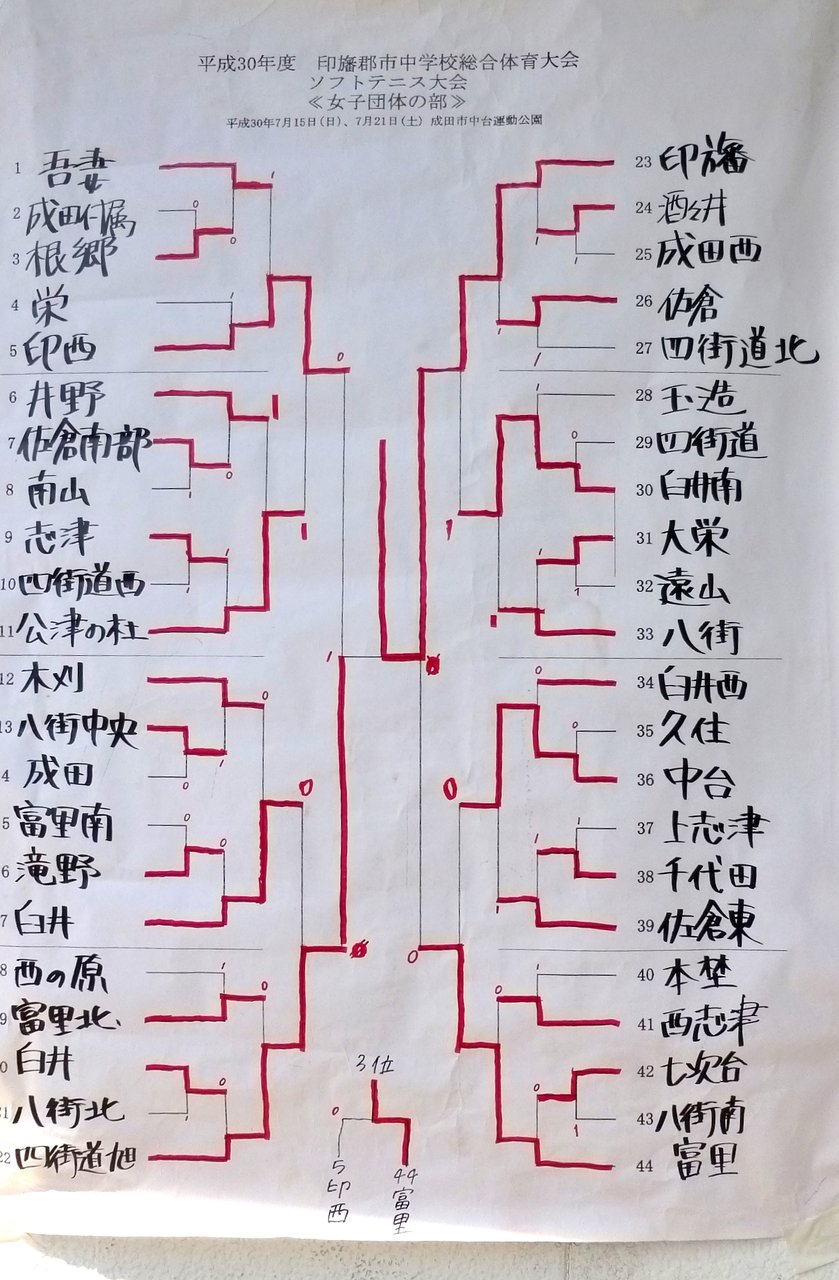 平成30年度 印旛郡市中学校総合体育大会
ソフトテニス大会
≪女子団体の部≫
平成30年7月15日(日)、7月21日(土) 成田市中台運動公園
1 吾妻
2 成田付属
3 根郷
4 栄
5 印西
6 井野
7 佐倉南部
8 南山
9 志津
10 四街道西
11 公津の杜
12 木刈
13 八街中央
4 成田
5 富里南
6 滝野
7 白井
8 西の原
9 富里北
0 白井
21 八街北
22 四街道旭
23 印旛
24 酒々井
25 成田西
26 佐倉
27 四街道北
28 玉造
29 四街道
30 臼井南
31 大栄
32 遠山
33 八街
34 臼井西
35 久住
36 中台
37 上志津
38 千代田
39 佐倉東
40 本埜
41 西志津
42 七次台
43 八街南
44 富里
3位
0
5 印西
44 富里